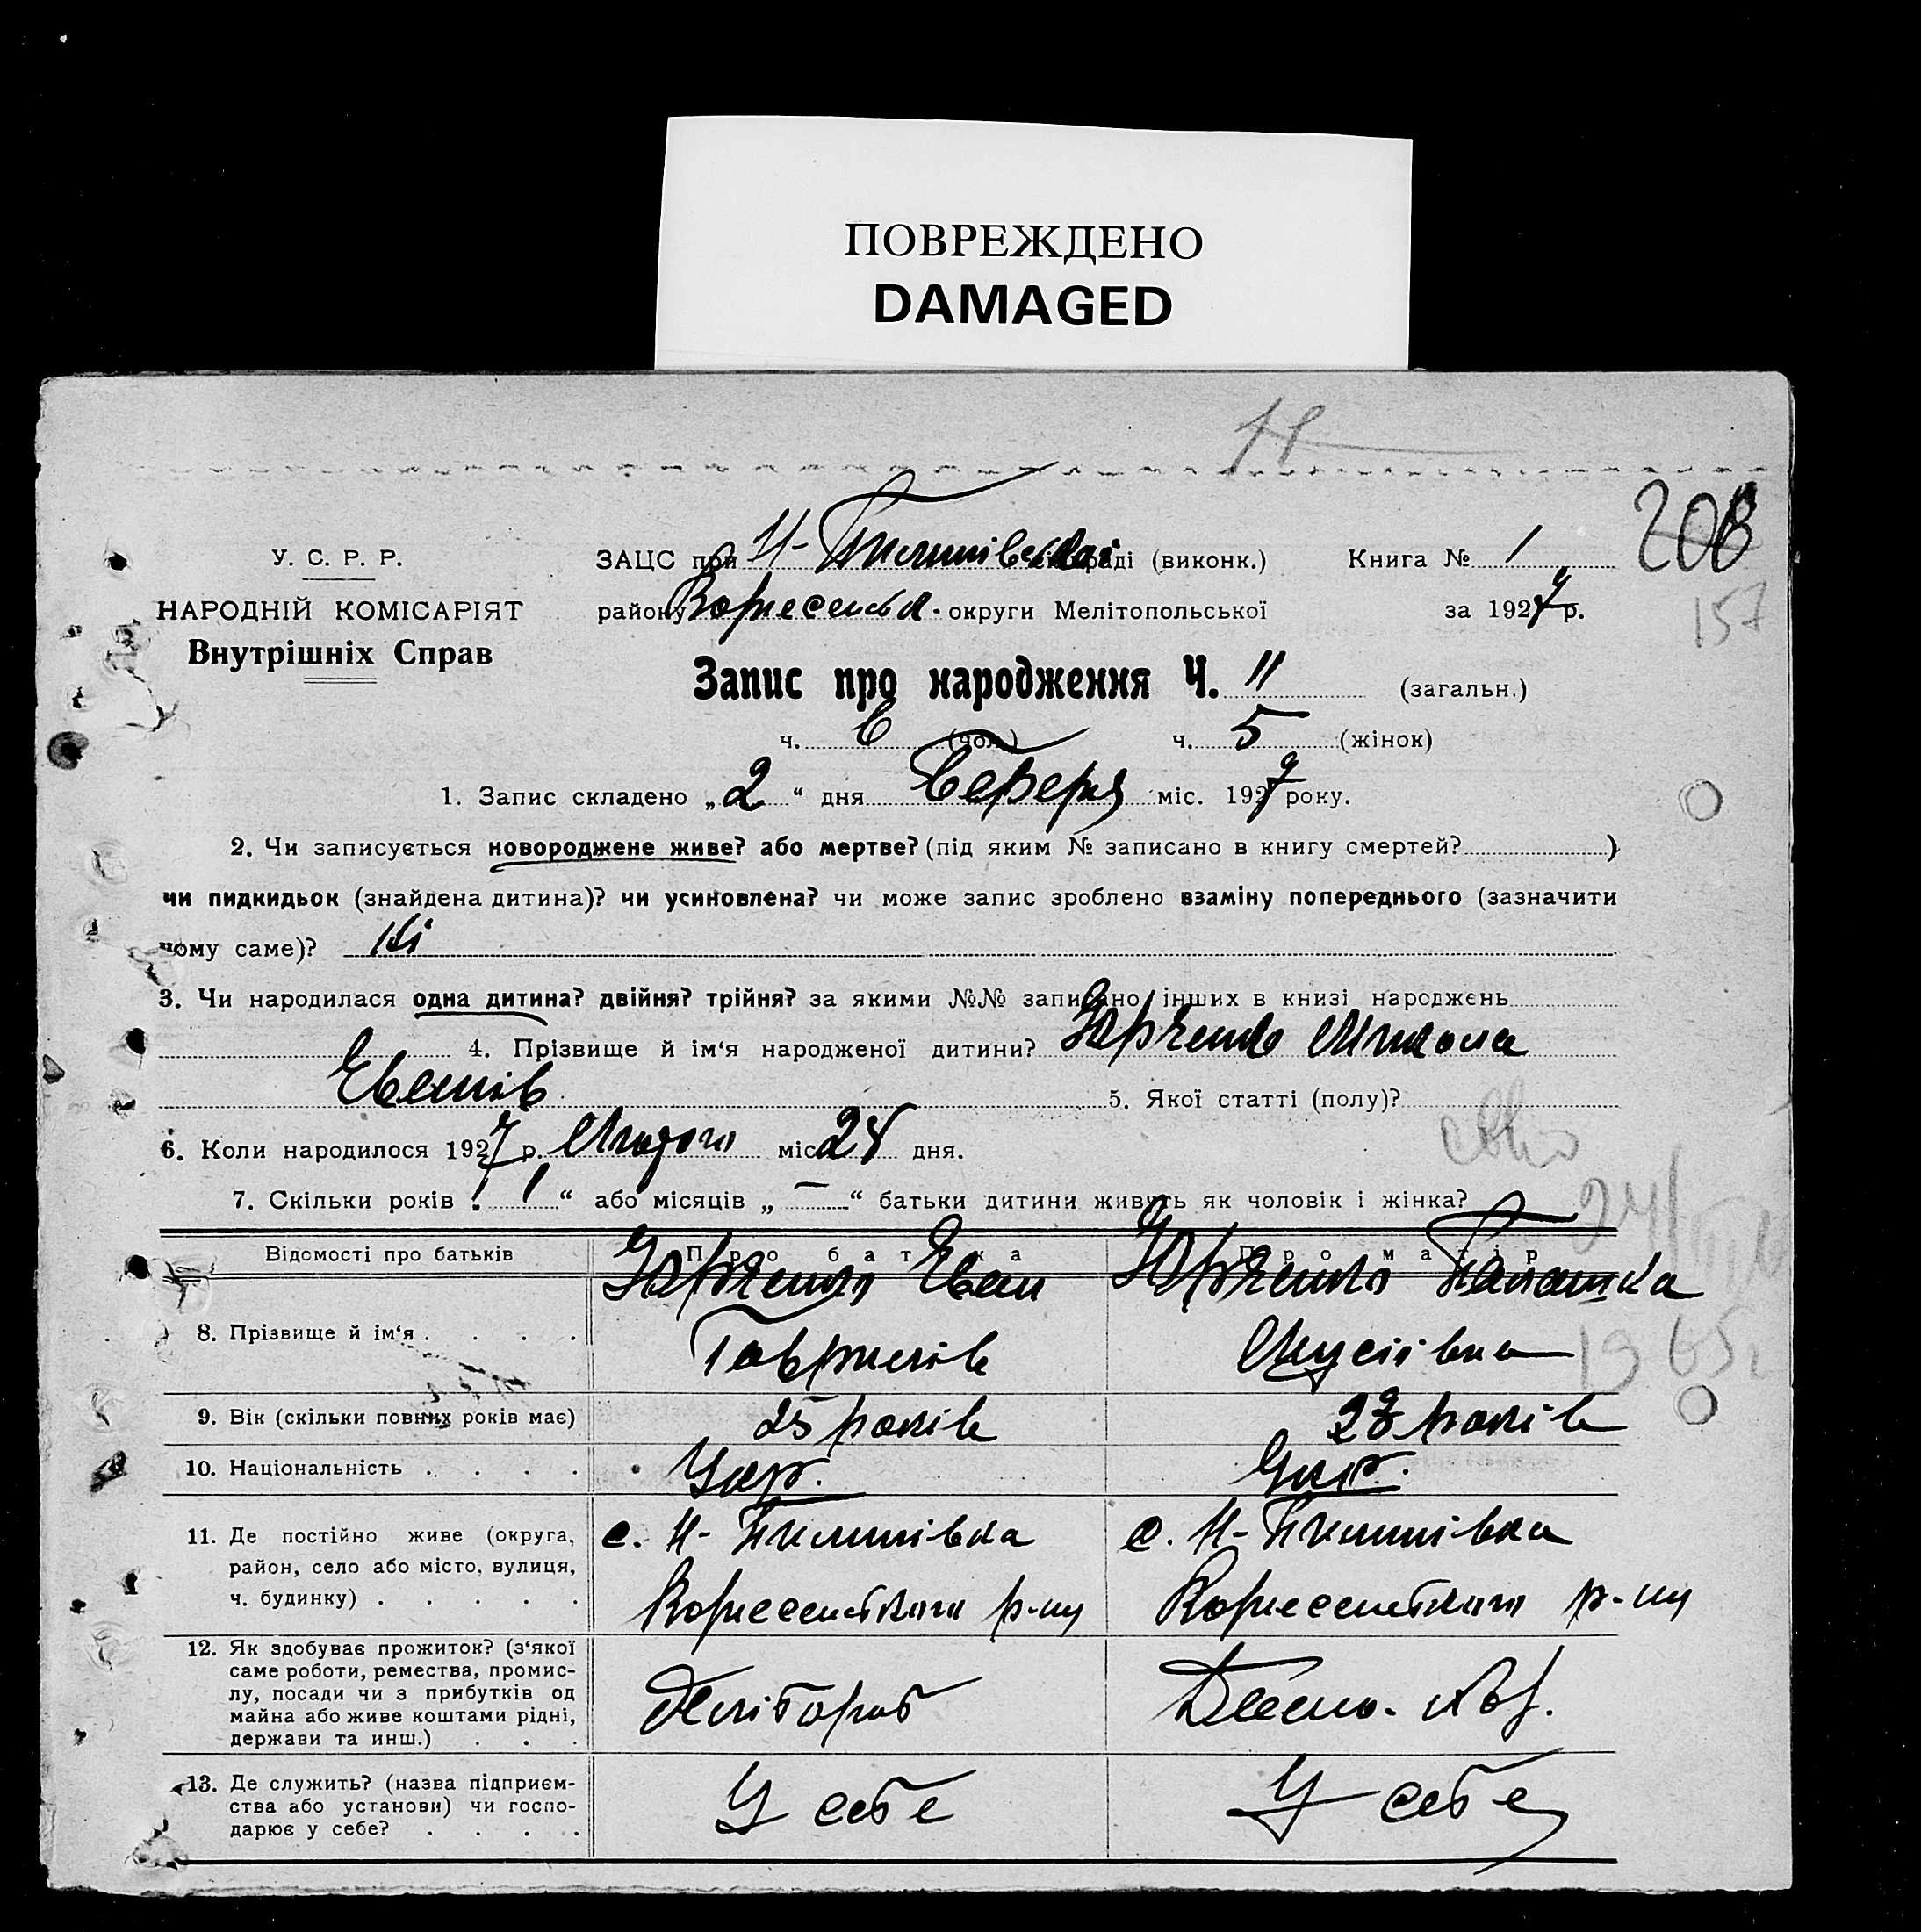 ПОВРЕЖДЕНО
DAMAGED
11
208
157
У. С. Р. Р.
НАРОДНІЙ КОМІСАРІЯТ
Внутрішніх Справ
ЗАЦС при Н- сільраді (виконк.) Книга № 1
району округи Мелітопольської за 1927 р.
Запис про народження Ч. 11 (загальн.)
ч. 6 (чол.) ч. 5 (жінок)
1. Запис складено „2“ дня міс. 1927 року.
2. Чи записується новороджене живе? або мертве? (під яким № записано в книгу смертей? )
чи пидкидьок (знайдена дитина)? чи усиновлена? чи може запис зроблено взаміну попереднього (зазначити
чому саме)? Ні
3. Чи народилася одна дитина? двійня? трійня? за якими №№ записано інших в книзі народжень
4. Прізвище й ім‘я народженої дитини? Юрченко Микола
Еванів 5. Якої статті (полу)?
6. Коли народилося 1927 р. Лютого міс 24 дня.
7. Скільки років „ 1 “ або місяців „ — “ батьки дитини живуть як чоловік і жінка?
Відомості про батьків Про батька Про матір
8. Прізвище й ім‘я . . . . Юрченко Еван Юрченко
Гаврилів
9. Вік (скільки повних років має) 25 років 23 років
10. Національність . . . . Укр. Укр.
11. Де постійно живе (округа, район, село або місто, вулиця, ч. будинку) . . . . . с. Н- с. Н-
р-ну р-ну
12. Як здобуває прожиток? (з‘якої саме роботи, ремества, промислу, посади чи з прибутків од майна або живе коштами рідні, держави та инш.) . . . Хлібороб
13. Де служить? (назва підприємства або установи) чи господарює у себе? . . . . У себе У себе